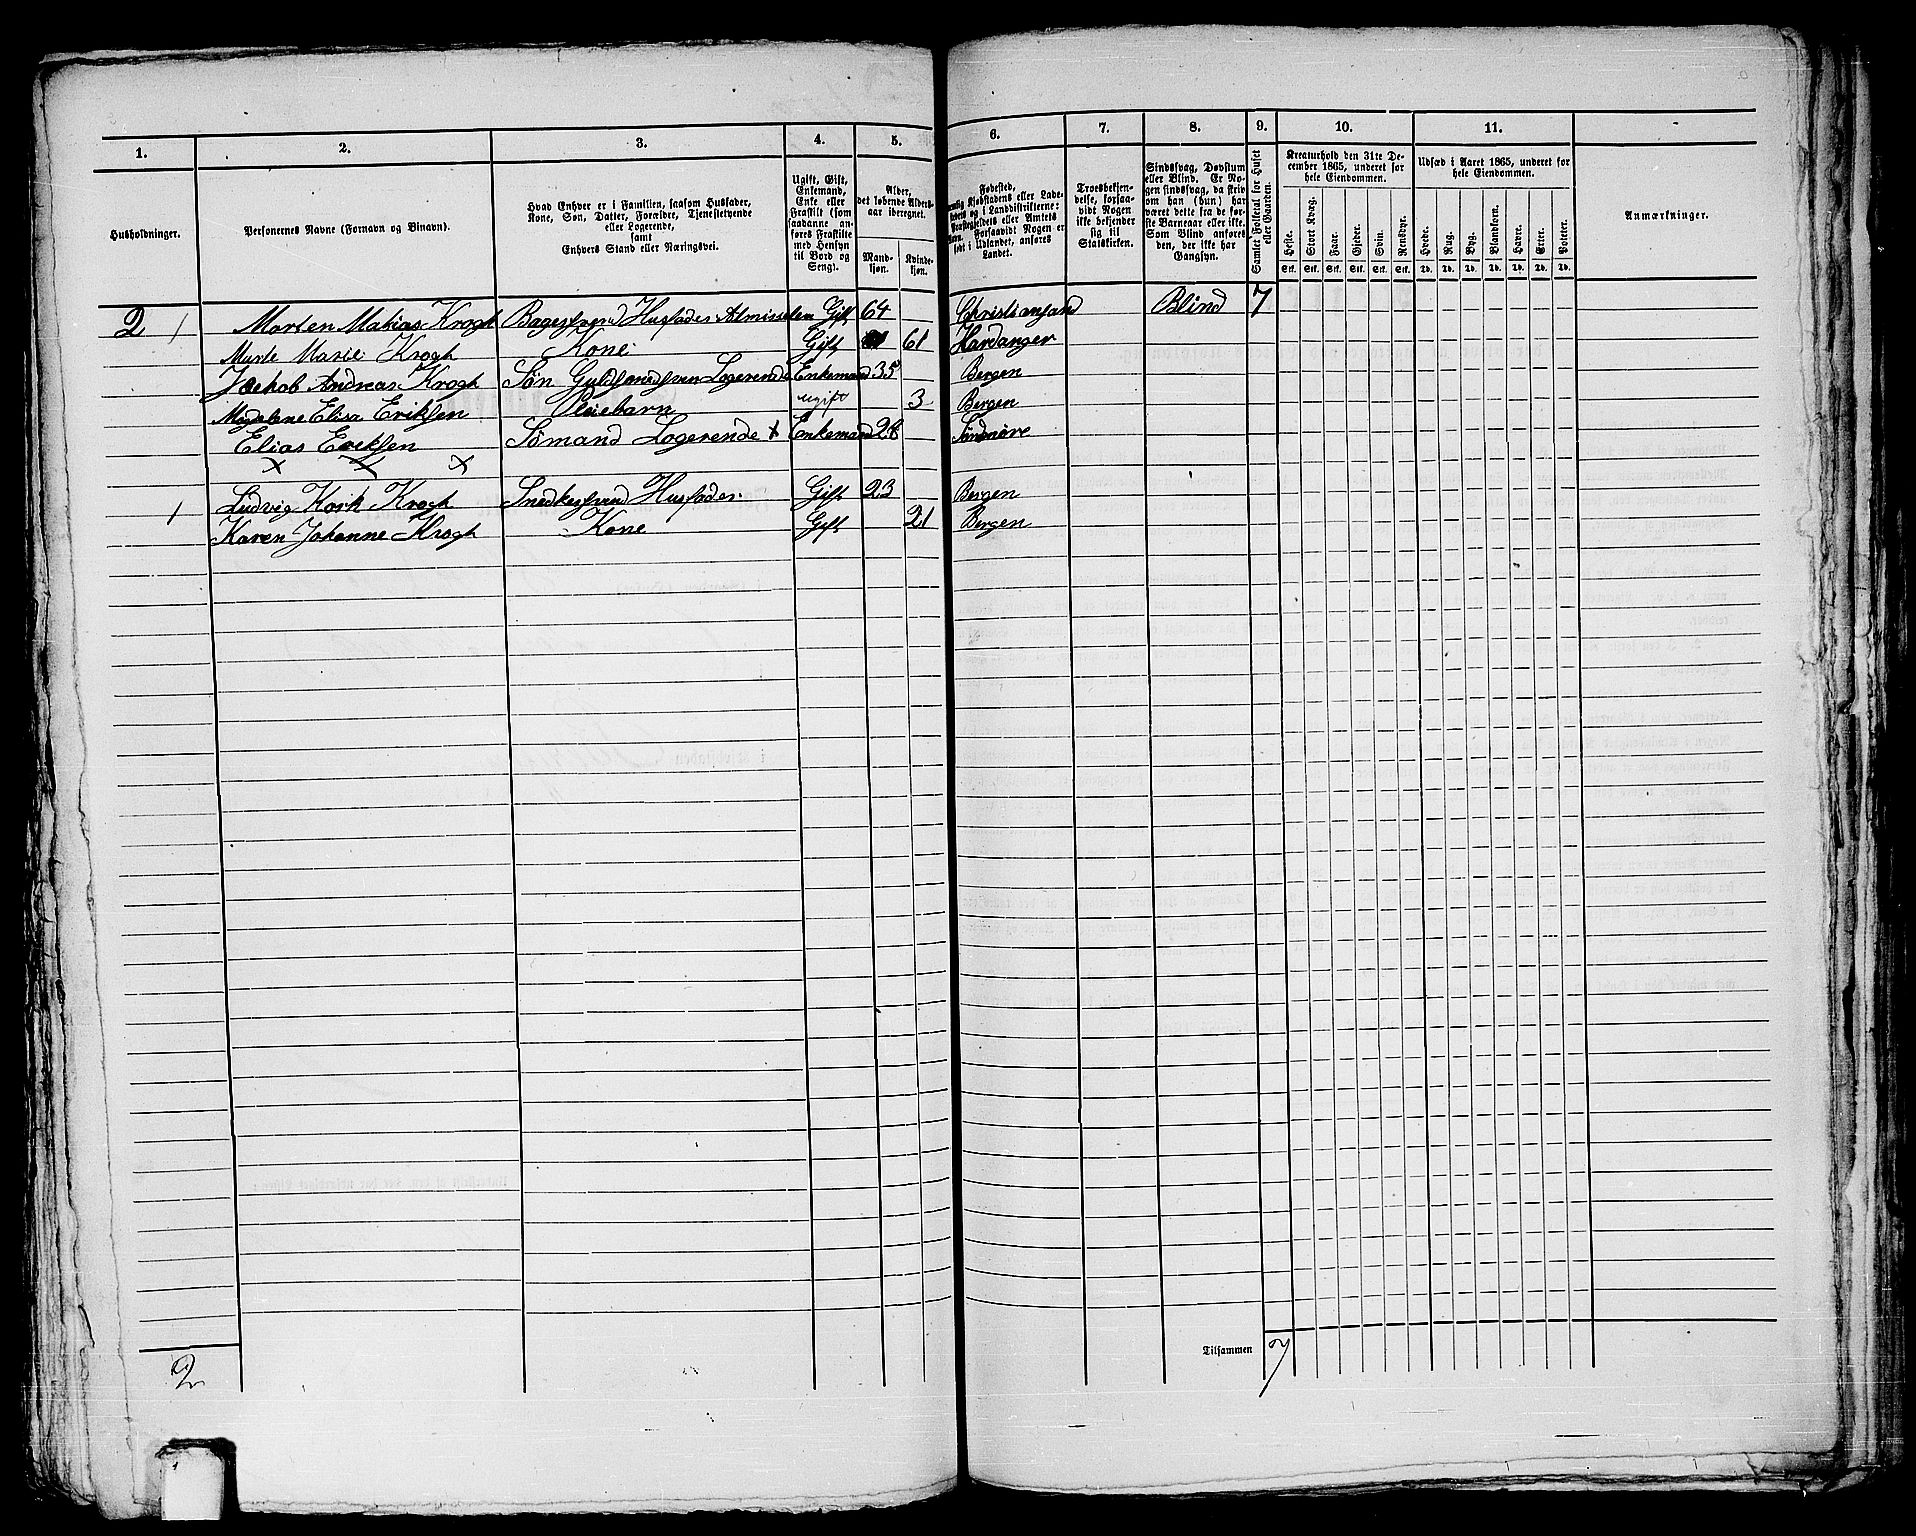 1. 2. 3. 4. 5. 6. 7. 8. 9. 10. 11.
Husholdninger.
Personernes Navne (Fornavn og Binavn).
Hvad Enhver er i Familien, saasom Husfader,
Kone, Søn, Datter, Forældre, Tjenestetyende
eller Logerende,
samt
Enhvers Stand eller Næringsvei.
Ugift, Gift,
Enkemand,
Enke eller
Fraskilt (som
saadanne an-
føres Fraskilte
med Hensyn
til Bord og
Seng).
Alder,
det løbende Alders-
aar iberegnet.
Mand-
kjøn.
Kvinde-
kjøn.
Fødested,
Landet.
Troesbekjen-
delse, forsaa-
vidt Nogen
ikke bekjender
sig til
Statskirken.
Sindssvag, Døvstum
eller Blind. Er No-
gen sindssvag, da skriv
om han (hun) har
været dette fra de før-
ste Barneaar eller ikke.
Som Blind anføres
den, der ikke har
Gangsyn.
Samlet Folketal for Huset
eller Gaarden.
Kreaturhold den 31te De-
cember 1865, underet for
hele Eiendommen.
Heste. Stort Kvæg. Faar. Gjeder. Svin. Rensdyr.
Stk. Stk. Stk. Stk. Stk. Stk.
Udsæd i Aaret 1865, underet for
hele Eiendommen.
Hvede. Rug. Byg. Blandkorn. Havre. Erter. Poteter.
Td. Td. Td. Td. Td. Td. Td.
Anmærkninger.
2 1 Morten Matias Krogh Bagersvend Husfader Almisselem Gift 64 Christiansand Blind 7
Marie Krogh Kone Gift 61 Hardanger
Jackob Andreas Krogh Søn Guldsmedsven Logerende Enkemand 35 Bergen
Magdalene Elisa Eriksen Pleiebarn ugift 3 Bergen
Elias Eriksen Sømand Logerende x Enkemand 28
x x x
1 Ludvig Krogh Snedkersvend Husfader Gift 23 Bergen
Karen Johanne Krogh Kone Gift 21 Bergen
Tilsammen 7
2